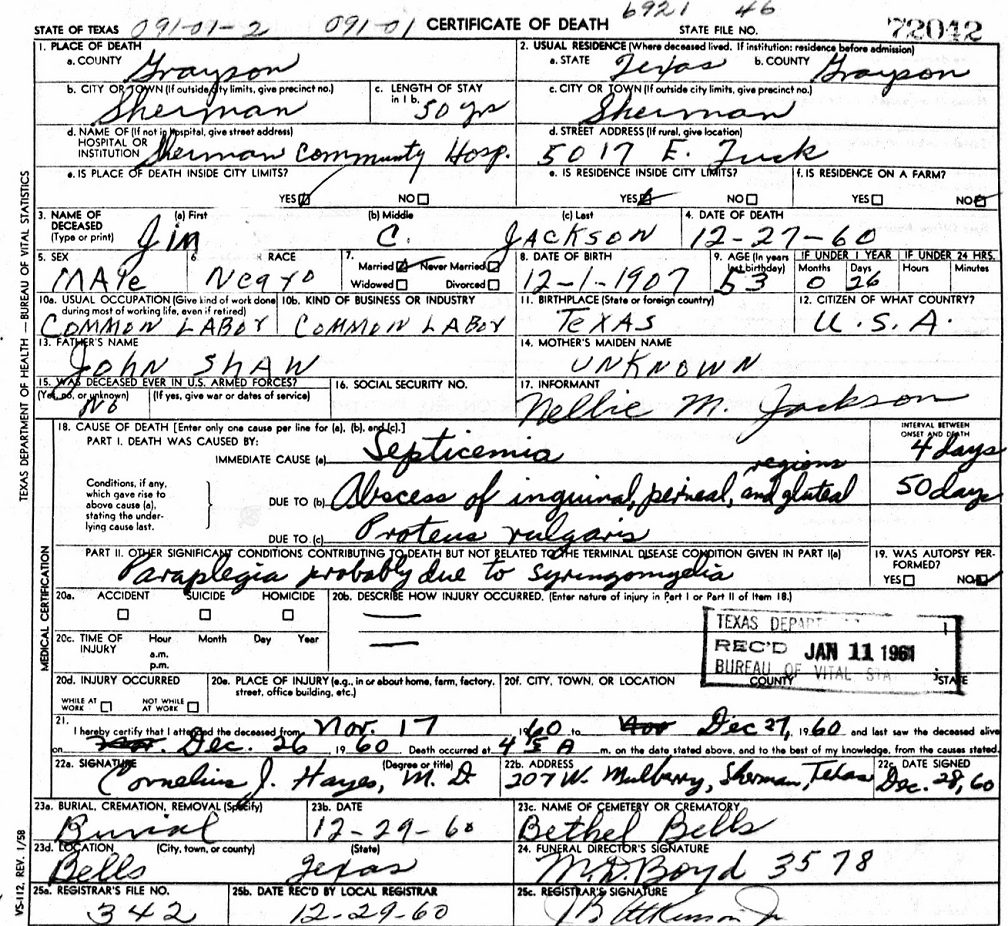 6921 46
STATE OF TEXAS 091-01-2 091-01 CERTIFICATE OF DEATH STATE FILE NO. 72042
1. PLACE OF DEATH 2. USUAL RESIDENCE (Where deceased lived. If institution: residence before admission)
a. COUNTY Grayson a. STATE Texas b. COUNTY Grayson
b. CITY OR TOWN (If outside city limits, give precinct no.) c. LENGTH OF STAY in 1 b. c. CITY OR TOWN (If outside city limits, give precinct no.)
Sherman 50 yrs Sherman
d. NAME OF (If not in hospital, give street address) HOSPITAL OR INSTITUTION Sherman Community Hosp. d. STREET ADDRESS (If rural, give location)
5017 E. Tuck
e. IS PLACE OF DEATH INSIDE CITY LIMITS? e. IS RESIDENCE INSIDE CITY LIMITS? f. IS RESIDENCE ON A FARM?
YES NO YES NO YES NO
3. NAME OF DECEASED (Type or print) (a) First (b) Middle (c) Last 4. DATE OF DEATH
Jim C. JACKSON 12-27-60
5. SEX 6. RACE 7. Married Never Married Widowed Divorced 8. DATE OF BIRTH 9. AGE (In years last birthday) IF UNDER 1 YEAR Months Days IF UNDER 24 HRS. Hours Minutes
MAle Negro 12-1-1907 53 0 26
10a. USUAL OCCUPATION (Give kind of work done during most of working life, even if retired) 10b. KIND OF BUSINESS OR INDUSTRY 11. BIRTHPLACE (State or foreign country) 12. CITIZEN OF WHAT COUNTRY?
COMMON LABOr COMMON LABOr TEXAS U.S.A.
13. FATHER'S NAME 14. MOTHER'S MAIDEN NAME
JOHN SHAW UNKNOWN
15. WAS DECEASED EVER IN U.S. ARMED FORCES? 16. SOCIAL SECURITY NO. 17. INFORMANT
(Yes, no, or unknown) (If yes, give war or dates of service)
No Nellie M. Jackson
18. CAUSE OF DEATH [Enter only one cause per line for (a), (b), and (c).] INTERVAL BETWEEN ONSET AND DEATH
PART I. DEATH WAS CAUSED BY:
IMMEDIATE CAUSE (a) Septicemia 4 days
Conditions, if any, which gave rise to above cause (a), stating the underlying cause last.
DUE TO (b) Abscess of inguinal, perineal, and gluteal regions 50 days
DUE TO (c) Proteus vulgaris
PART II. OTHER SIGNIFICANT CONDITIONS CONTRIBUTING TO DEATH BUT NOT RELATED TO THE TERMINAL DISEASE CONDITION GIVEN IN PART I(a) 19. WAS AUTOPSY PERFORMED?
Paraplegia probably due to syringomyelia YES NO
20a. ACCIDENT SUICIDE HOMICIDE 20b. DESCRIBE HOW INJURY OCCURRED. (Enter nature of injury in Part I or Part II of Item 18.)
20c. TIME OF INJURY Hour Month Day Year
a.m.
p.m.
TEXAS DEPAR
REC'D JAN 11 1961
BUREAU OF VITAL STA
20d. INJURY OCCURRED 20e. PLACE OF INJURY (e.g., in or about home, farm, factory, street, office building, etc.) 20f. CITY, TOWN, OR LOCATION COUNTY STATE
WHILE AT WORK NOT WHILE AT WORK
21. I hereby certify that I attended the deceased from Nov. 17 1960 to Nov Dec 27, 1960 and last saw the deceased alive
on Nov. Dec. 26 1960 Death occurred at 4 15 A m. on the date stated above, and to the best of my knowledge, from the causes stated.
22a. SIGNATURE (Degree or title) 22b. ADDRESS 22c. DATE SIGNED
Cornelius J. Hayes, M.D. 207 W. Mulberry, Sherman, Texas Dec. 28, 60
23a. BURIAL, CREMATION, REMOVAL (Specify) 23b. DATE 23c. NAME OF CEMETERY OR CREMATORY
Burial 12-29-60 Bethel Bells
23d. LOCATION (City, town, or county) (State) 24. FUNERAL DIRECTOR'S SIGNATURE
Bells Texas M.D. Boyd 3578
25a. REGISTRAR'S FILE NO. 25b. DATE REC'D BY LOCAL REGISTRAR 25c. REGISTRAR'S SIGNATURE
342 12-29-60
TEXAS DEPARTMENT OF HEALTH — BUREAU OF VITAL STATISTICS
MEDICAL CERTIFICATION
VS-112, REV. 1/58